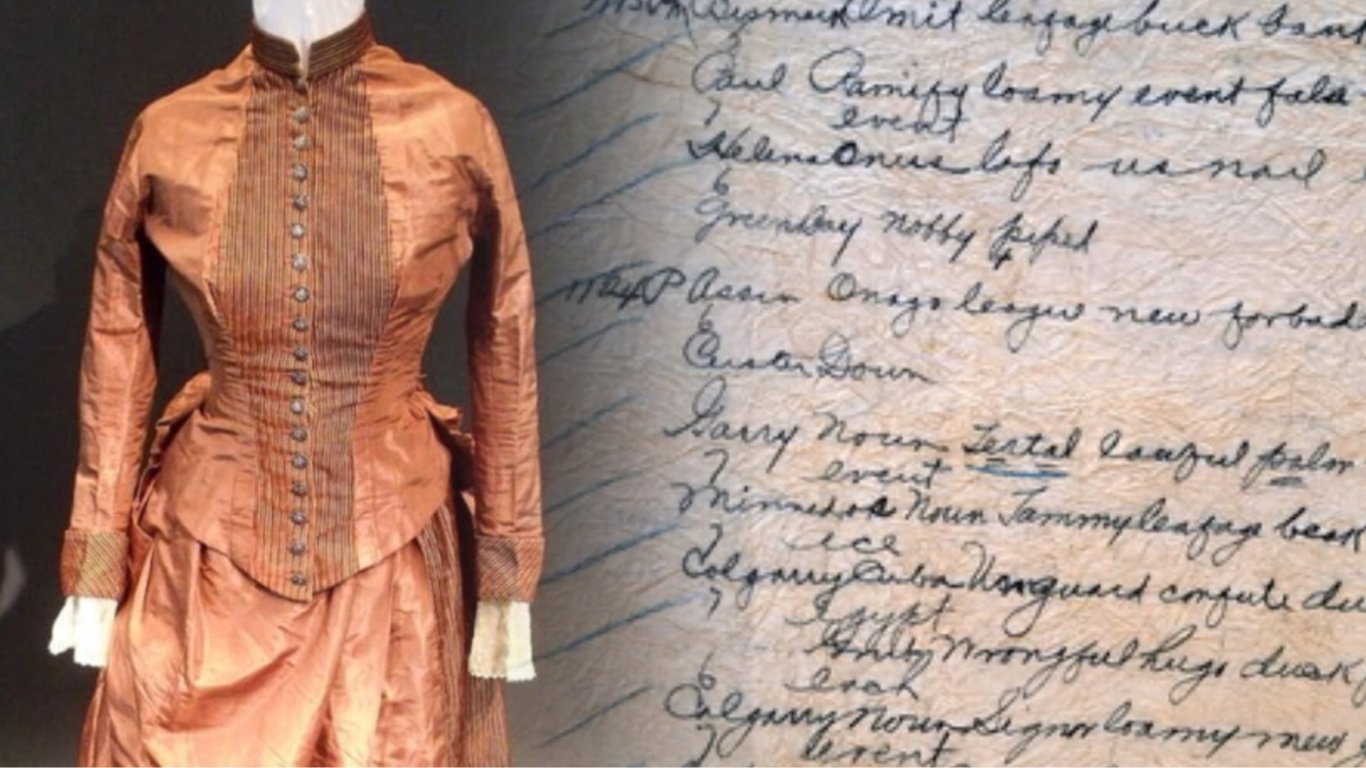 Bismark Omit leafage buck bank
Paul Ramify loamy event false
7 event
Helena Onus lofo us nail
6
Greenbay nobby peped
Assin Onago league new forbade
6
Custer Down
Garry Noun Tertal lawful palm
7 event
Minnedos Noun Jammy leafage beak
7 ice
Calgarry Cuba Unguard confute du
7 Egypt
Grily Wrongful hugo duck f
6 each
Calgarry Noun Signor loamy mew
7 event